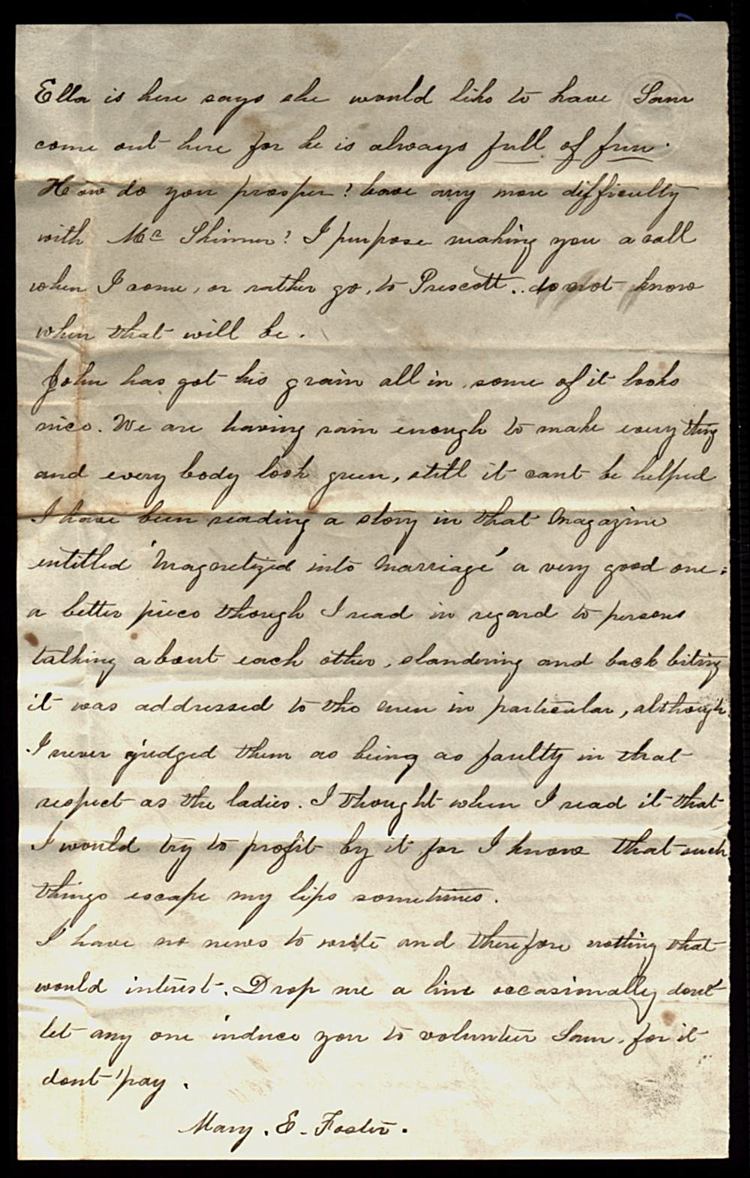 Ella is here says she would like to have Sam
come out here for he is always full of fun.
How do you prosper? have any more difficulty
with Mc Skinner? I purpose making you a call
when I come, or rather go, to Prescott.. do not know
when that will be.
John has got his grain all in, some of it looks
nice. We are having rain enough to make every thing
and every body look green, still it cant be helped
I have been reading a story in that Magazine
entitled 'Magnetized into Marriage' a very good one:
a better piece though I read in regard to persons
talking about each other, slandering and back biting
it was addressed to the men in particular, although
I never judged them as being as faulty in that
respect as the ladies. I thought when I read it that
I would try to profit by it for I know that such
things escape my lips sometimes.
I have no news to write and therefore nothing that
would interest. Drop me a line occasionally don't
let any one induce you to volunteer Sam, for it
dont pay.
Mary. E. Foster.